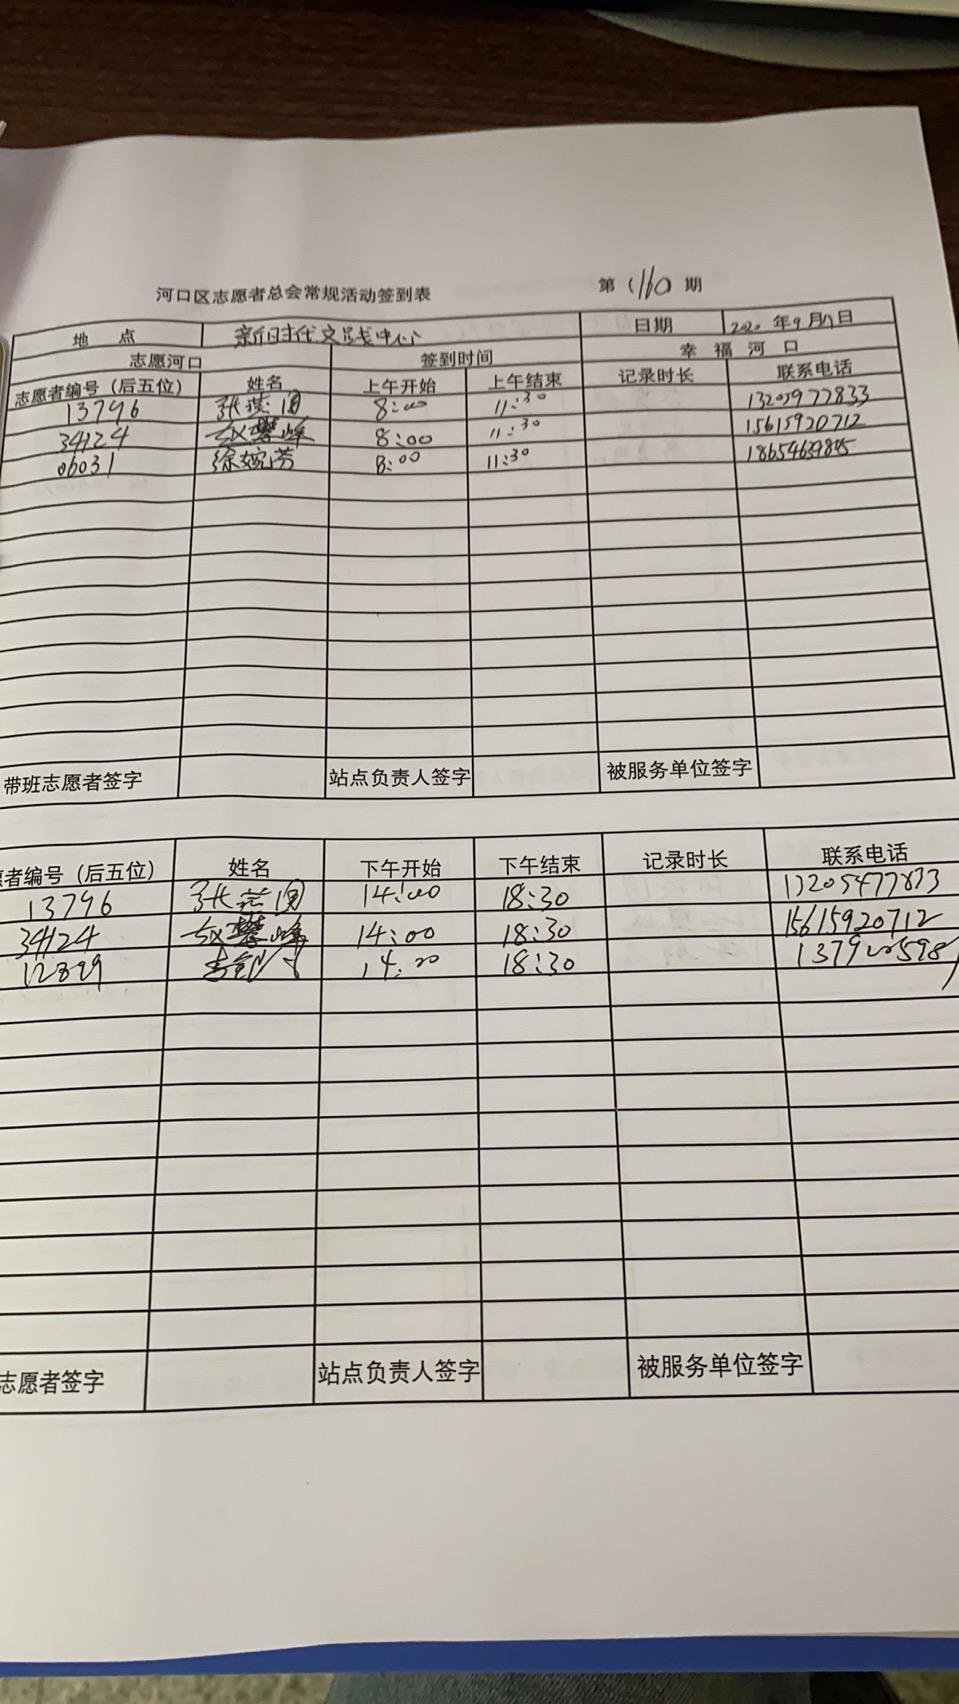 河口区志愿者总会常规活动签到表 第（160 期
地 点 新时代文践中心 日期 2020 年9月17日
志愿河口 签到时间 幸 福 河 口
志愿者编号（后五位） 姓名 上午开始 上午结束 记录时长 联系电话
13796 8:00 11:30
34124 赵攀峰 8:00 11:30 15615920712
06031 徐婉芳 8:00 11:30
带班志愿者签字 站点负责人签字 被服务单位签字
愿者编号（后五位） 姓名 下午开始 下午结束 记录时长 联系电话
13796 14:00 18:30 13205477833
34124 赵攀峰 14:00 18:30 15615920712
12899 14:00 18:30
志愿者签字 站点负责人签字 被服务单位签字